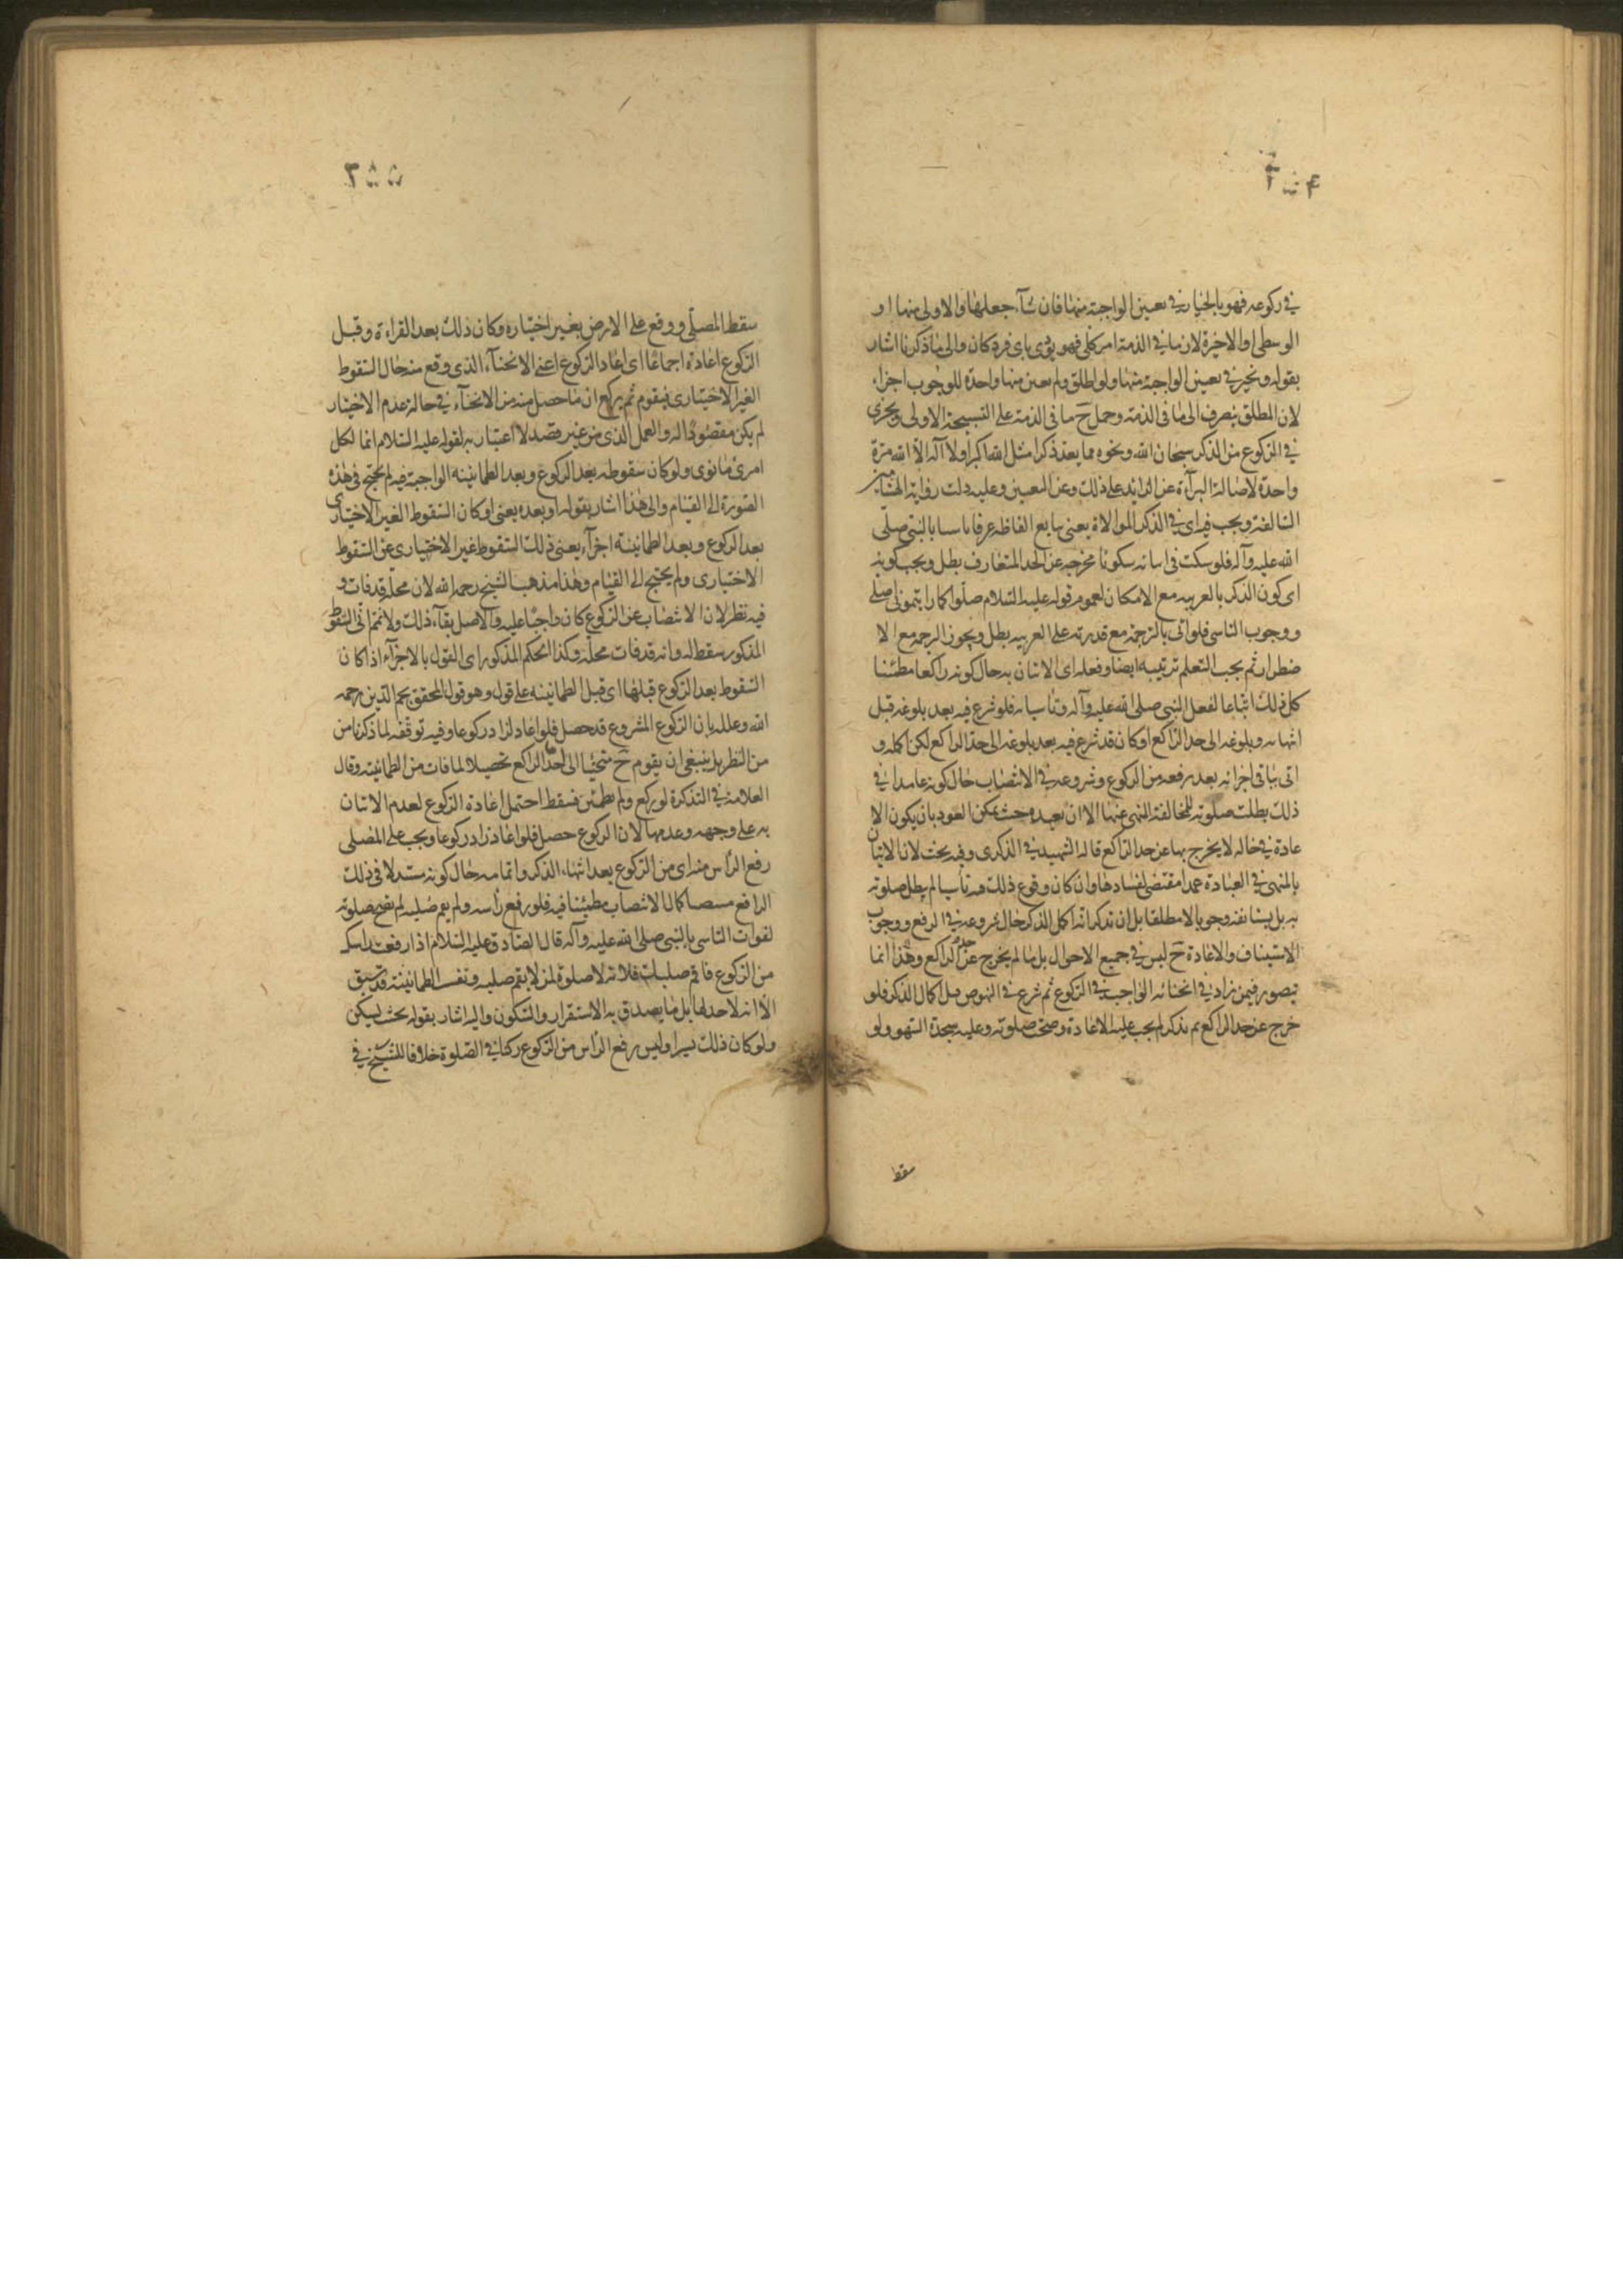 ۲۵۴
في ركوعه فهو بالخيار في تعيين الواجبة منها فان شآء جعلها والاولى منها او
الوسطى او الاخيرة لان ما في الذمة امر كلي فهو يؤدى باى فرد كان والى ما ذكرنا اشار
بقوله ونخير في تعيين الواجبة منها ولو اطلق ولم يعين منها واحدة للوجوب اجزاء
لان المطلق ينصرف الى ما فى الذمة وحمل ح ما فى الذمة على التسبيحة الاولى ويجزى
في الركوع من الذكر سبحان الله ونحوه مما يعد ذكرا مثل الله اكبر او لا آله الا الله مرة
واحدة لاصالة البرآءة عن الزائد على ذلك وعن المعين وعليه دلت رواية الهشامين
السالفة ويجب فيه اى في الذكر الموالاة يعنى تتابع الفاظه عرفا تاسيا بالنبى صلى
الله عليه وآله فلو سكت فى اثنائه سكوتا مخرجه عن الحد المتعارف بطل ويجب كونه
اى كون الذكر بالعربيه مع الامكان لعموم قوله عليه السلام صلوا كما رايتمونى اصلى
ووجوب التاسى فلو اتى بالترجمة مع قدرته على العربيه بطل ويجوز الترجمه مع الا
ضطرار ثم يجب التعلم ترتيبه ايضا وفعله اى الاتيان به حال كونه راكعا مطمئنا
كل ذلك اتباعا لفعل النبى صلى الله عليه وآله وتاسيا به فلو شرع فيه بعد بلوغه قبل
انتهائه وبلوغه الى حد الراكع او كان قد شرع فيه بعد بلوغه الى حد الراكع لكن اكمله و
اتى بباقى اجزائه بعد رفعه من الركوع وشروعه في الانتصاب حال كونه عامدا في
ذلك بطلت صلوته للمخالفة النهى عنها الا ان يعيده حيث يمكن العود بان يكون الا
عادة في حاله لا يخرج بها عن حد الراكع قاله الشهيد في الذكرى وفيه بحث لان الاتيان
بالمنهى في العبادة عمدا مقتضى لفسادها وان كان وقوع ذلك منه ناسيا لم يطل صلوته
به بل يستانفه وجوبا لا مطلقا بل ان تذكر انه اكمل الذكر حال شروعه في الرفع ووجوب
الاستيناف والاعادة ح ليس في جميع الاحوال بل ما لم يخرج عن حد الراكع وهذا انما
يتصور فيمن زاد في انحنائه الواجب في الركوع ثم شرع في النهوض قبل اكمال الذكر فلو
خرج عن حد الراكع ثم تذكر لم يجب عليه الاعادة وصحت صلوته وعليه سجدة السهو ولو
سقط
۲۵۵
سقط المصلى ووقع على الارض بغير اختياره وكان ذلك بعد القراءة وقبل
الركوع اعاده اجماعا اى اعاد الركوع اعنى الانحنآء الذى وقع منه حال السقوط
الغير الاختيارى فيقوم ثم يركع ان ما حصل منه من الانحنآء في حالة عدم الاختيار
لم يكن مقصودا له والعمل الذى من غير قصد لا اعتبار به لقوله عليه السلام انما لكل
امرئ ما نوى ولو كان سقوطه بعد الركوع وبعد الطمانينه الواجبة فيه لم يحتج فى هذه
الصورة الى القيام والى هذا اشار بقوله او بعده يعنى او كان السقوط الغير الاختيارى
بعد الركوع وبعد الطمانينة اجزآء يعنى ذلك السقوط غير الاختيارى عن السقوط
الاختيارى ولم يحتج الى القيام وهذا مذهب الشيخ رحمه الله لان محله قد فات و
فيه نظر لان الانتصاب عن الركوع كان واجبا عليه والاصل بقآء ذلك ولا نتم اتى السقوط
المذكور سقط له وانه قد فات محله وكذا الحكم المذكور اى القول بالاجزآء اذا كان
السقوط بعد الركوع قبلها اى قبل الطمانينه على قول وهو قول المحقق نجم الدين رحمه
الله وعلله بان الركوع المشروع قد حصل فلو اعاد لزاد ركوعا وفيه توقفه لما ذكرنا من
من النظر بل ينبغى ان يقوم ح منحنيا الى حد الراكع تحصيلا لما فات من الطمانينه وقال
العلامة في التذكرة لو ركع ولم يطمئن فسقط احتمل اعادة الركوع لعدم الاتيان
به على وجهه وعدمها لان الركوع حصل فلو اعاد زاد ركوعا ويجب على المصلى
رفع الرأس منه اى من الركوع بعد انتهاء الذكر واتمامه حال كونه معتدلا فى ذلك
الرافع منتصبا كمال الانتصاب مطمئنا فيه فلو رفع رأسه ولم يقم صلبه لم تصح صلوته
لفوات التاسى بالنبى صلى الله عليه وآله قال الصادق عليه السلام اذا رفعت راسك
من الركوع فاقم صلبك فانه لا صلوة لمن لا يقم صلبه وتفسير الطمانينة قد سبق
الا انه لا حد لها بل ما يصدق به الاستقرار والسكون واليه اشار بقوله بحيث يسكن
ولو كان ذلك يسيرا وليس رفع الرأس من الركوع ركنا في الصلوة خلافا للشيخ في